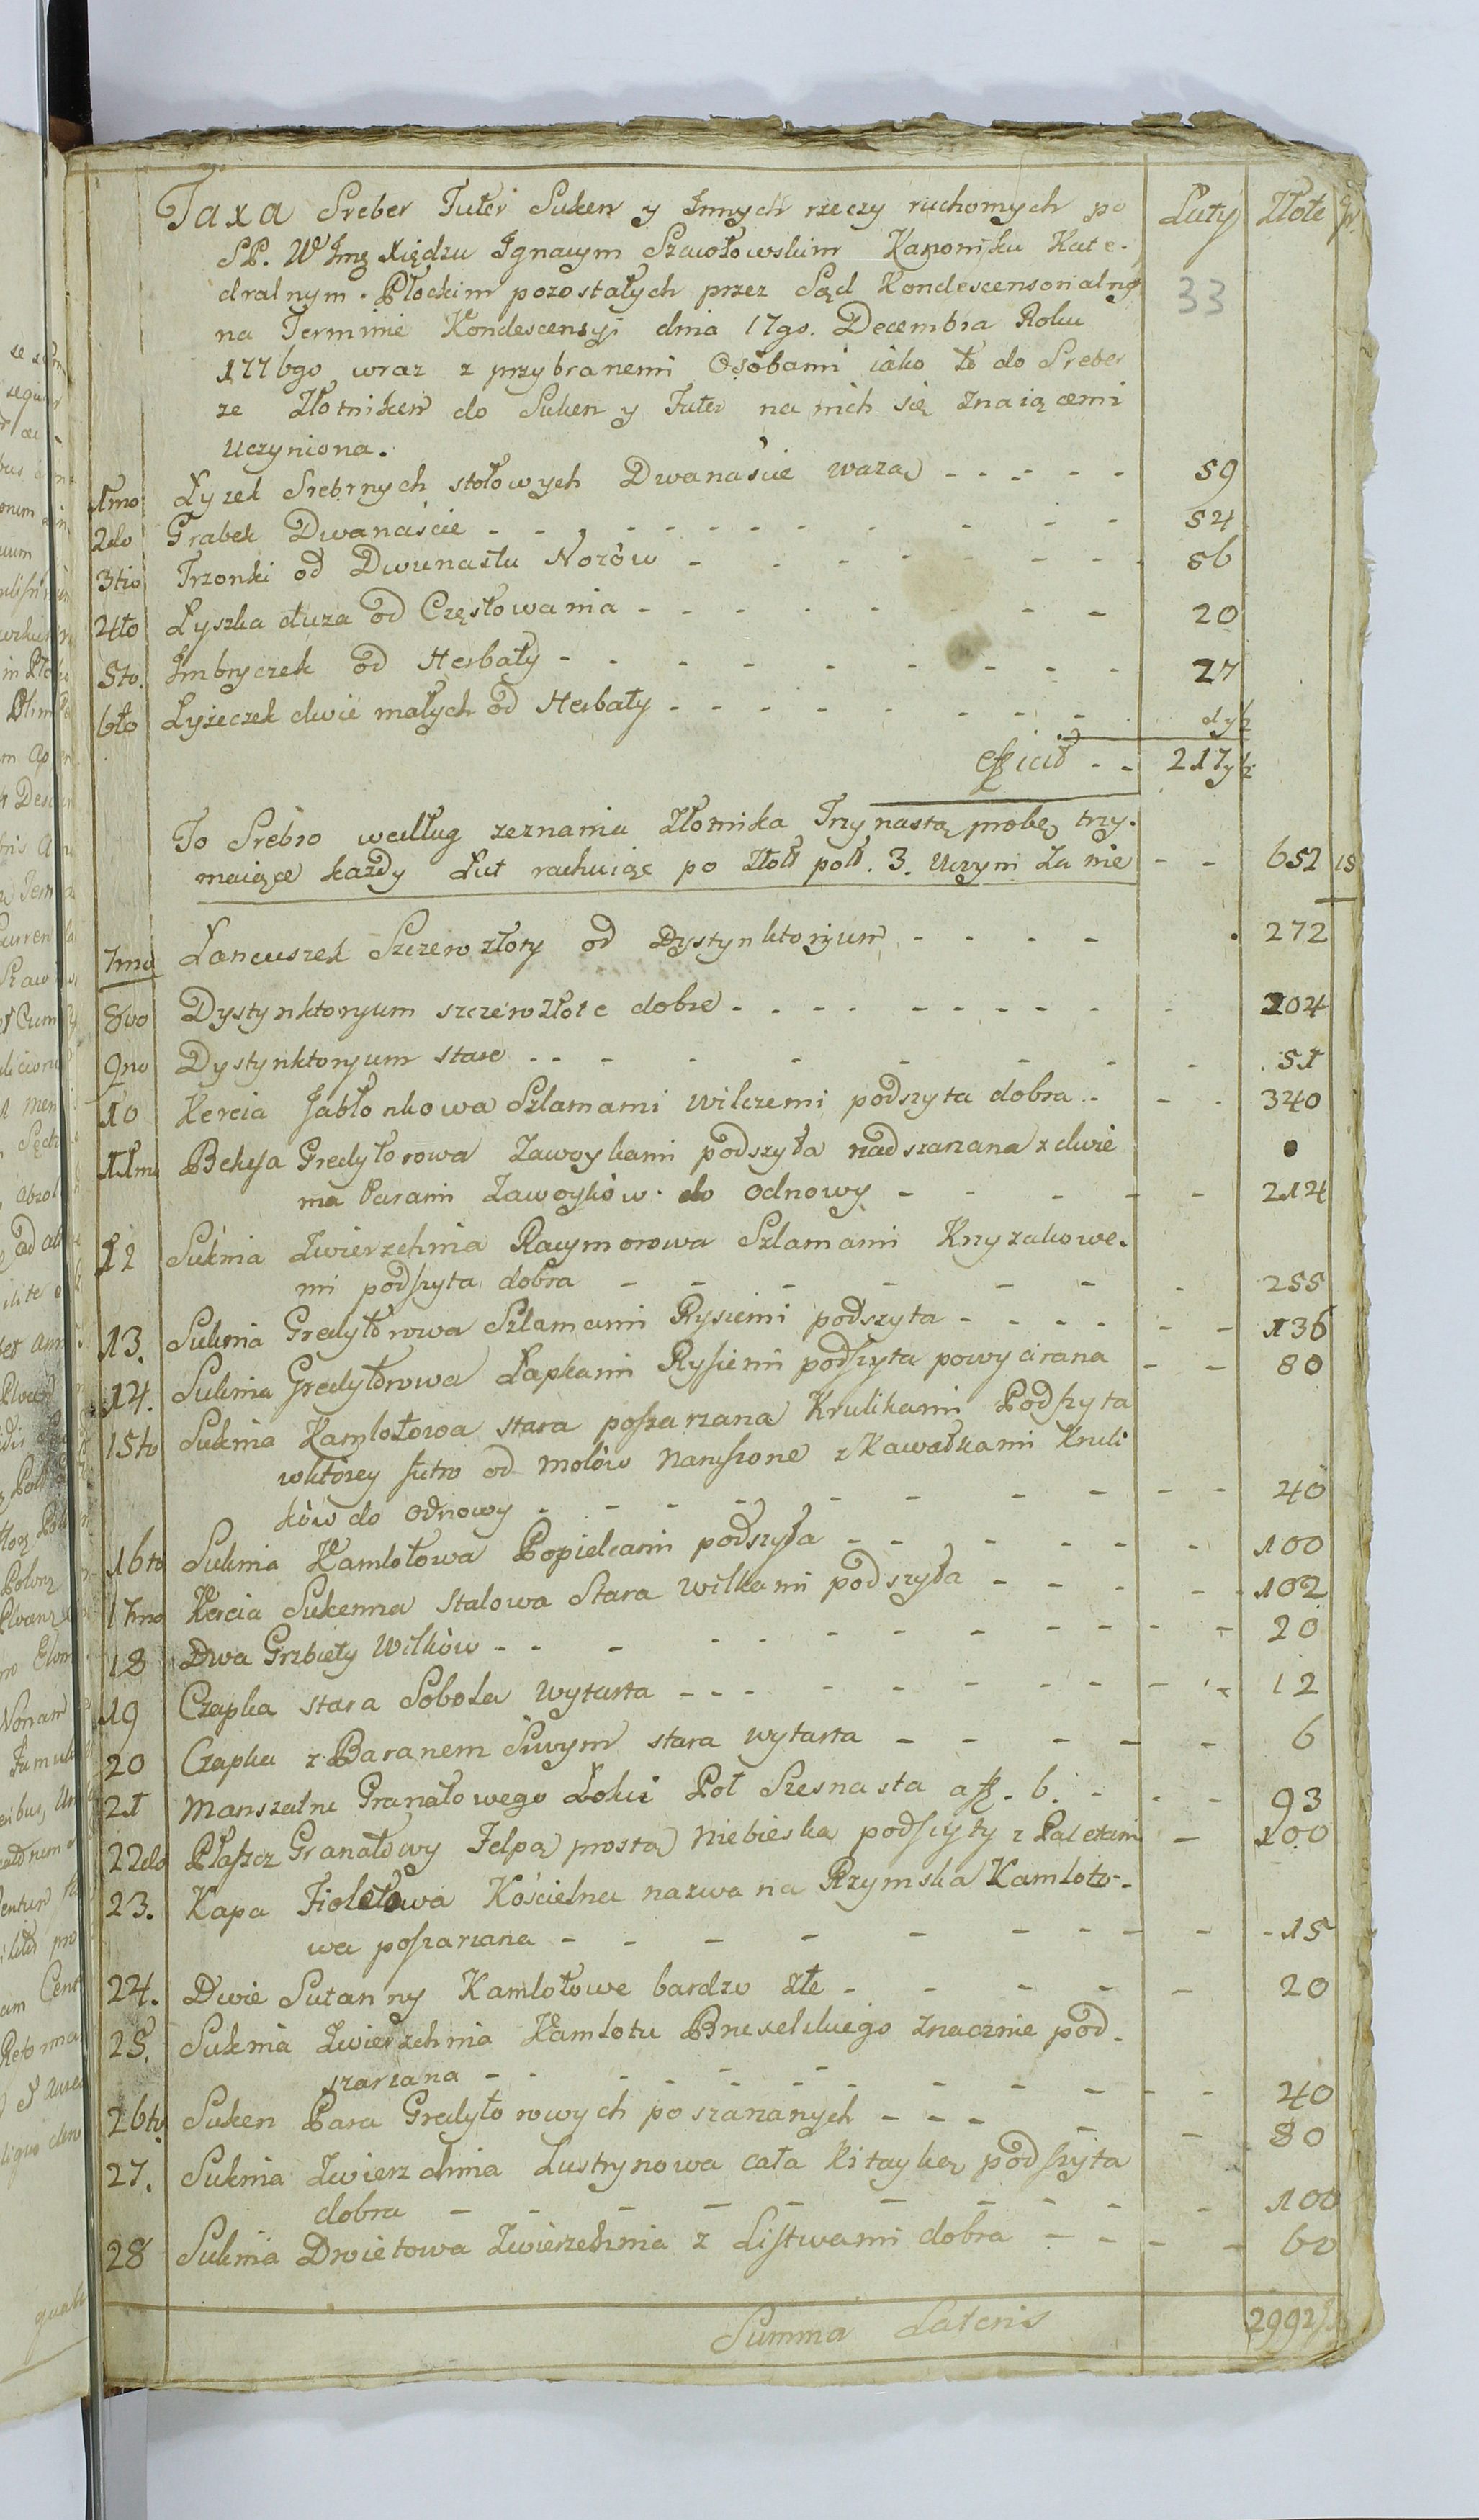 Taxa Sreber Futer Suken y Innych rzeczy ruchomych po Łuty Złote gr
SP. W Jmę Xiędzu Ignacym Szawłowskim Kanoniku Kate-
dralnym Płockim pozostałych przez Sąd Kondescensorialny 33
na Terminie Kondescensyi dnia 17go. Decembra Roku
1776go wraz z przybranemi Osobami iako to do Sreber
ze Złotnikem do Suken y Futer na nich się znaiącemi
uczyniona.
1mo Łyzek Srebrnych stołowych Dwanaście wazą - - - - - 59
2do Grabek Dwanaście - - - - - - - - - - 54
3tio Trzonki od Dwunastu Nozów - - - - - - - 56
4to Łyszka duza od Częstowania - - - - - - - 20
5to. Imbryczek od Herbaty - - - - - - - - 27
6to Łyżeczek dwie małych od Herbaty - - - - - - - 1 y ½
Efficit - - 217 y ½
To Srebro według zeznania Złotnika Trzynastą probę trzy-
maiące każdy Łut rachuiąc po Złoł poł. 3. Uczyni za nie - - 652 15
7mo Łancuszek Szczerozłoty od Dystynktoryum - - - - 272
8vo Dystynktoryum szczerozłote dobre - - - - - - - - 204
9no Dystynktoryum stare - - - - - - - - 51
10 Kercia Jabłonkowa Szlamami wilczemi podszyta dobra - - - 340
11mo Bekesa Gredytorowa Zawoykami podszyta nadszarzana z dwie
ma Parami Zawoyków do odnowy - - - - - 214
12 Suknia Zwierzchnia Racymorowa Szlamami Krzyzakowe-
mi podszyta dobra - - - - - - - 255
13. Suknia Gredytorowa Szlamami Rysiemi podszyta - - - - - - 136
14. Suknia Gredytorowa Łapkami Rysiemi podszyta powycirana - - 80
15to Suknia Kamlotowa stara poszarzana Krulikami Podszyta
wktórey futro od molów naruszone z Kawałkami Kruli
ków do odnowy - - - - - - - - - - 40
16to Suknia Kamlotowa Popielcami podszyta - - - - - - - 100
17mo Kercia Sukenna stalowa Stara Wilkami podszyta - - - - - 102
18 Dwa Grzbiety Wilków - - - - - - - - - - - - 20
19 Czapka stara Sobola wytarta - - - - - - - - - - - 12
20 Czapka z Baranem Siwym stara wytarta - - - - - 6
21 Manszatru Granatowego Łokci Poł Szesnasta a fl. 6. - - - 93
22do Płaszcz Granatowy Felpą prostą Niebieską podszyty z Paletami - 100
23. Kapa Fioletowa Kościelna nazwana Rzymska Kamloto-
wa poszarzana - - - - - - - - - - 15
24. Dwie Sutanny Kamlotowe bardzo złe - - - - - 20
25. Suknia Zwierzchnia Kamlotu Bruxelskiego znacznie pod-
szarzana - - - - - - - - - - - - 40
26to. Suken Para Gredytorowych poszarzanych - - - - - 80
27. Suknia Zwierzchnia Lustrynowa cała Kitayką podszyta
dobra - - - - - - - - - - 100
28 Suknia Droietowa Zwierzchnia z Listwami dobra - - - - 60
Summa Lateris 2992/15